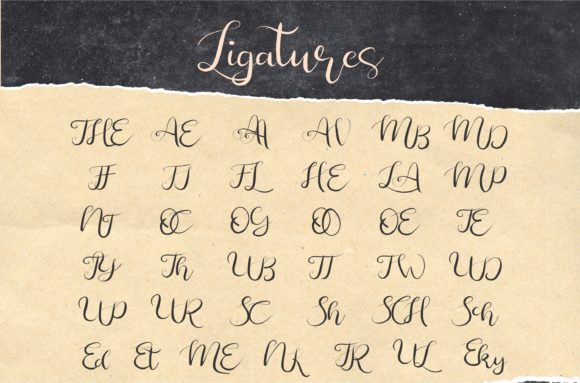 Ligatures
THE AE AV MB MD
FL HE LA MP
NT OC OG OO OE TE
TY Th UB TT TW UD
UP UR SC Sh SCH Sch
Ed Et ME NK TR UL Eky